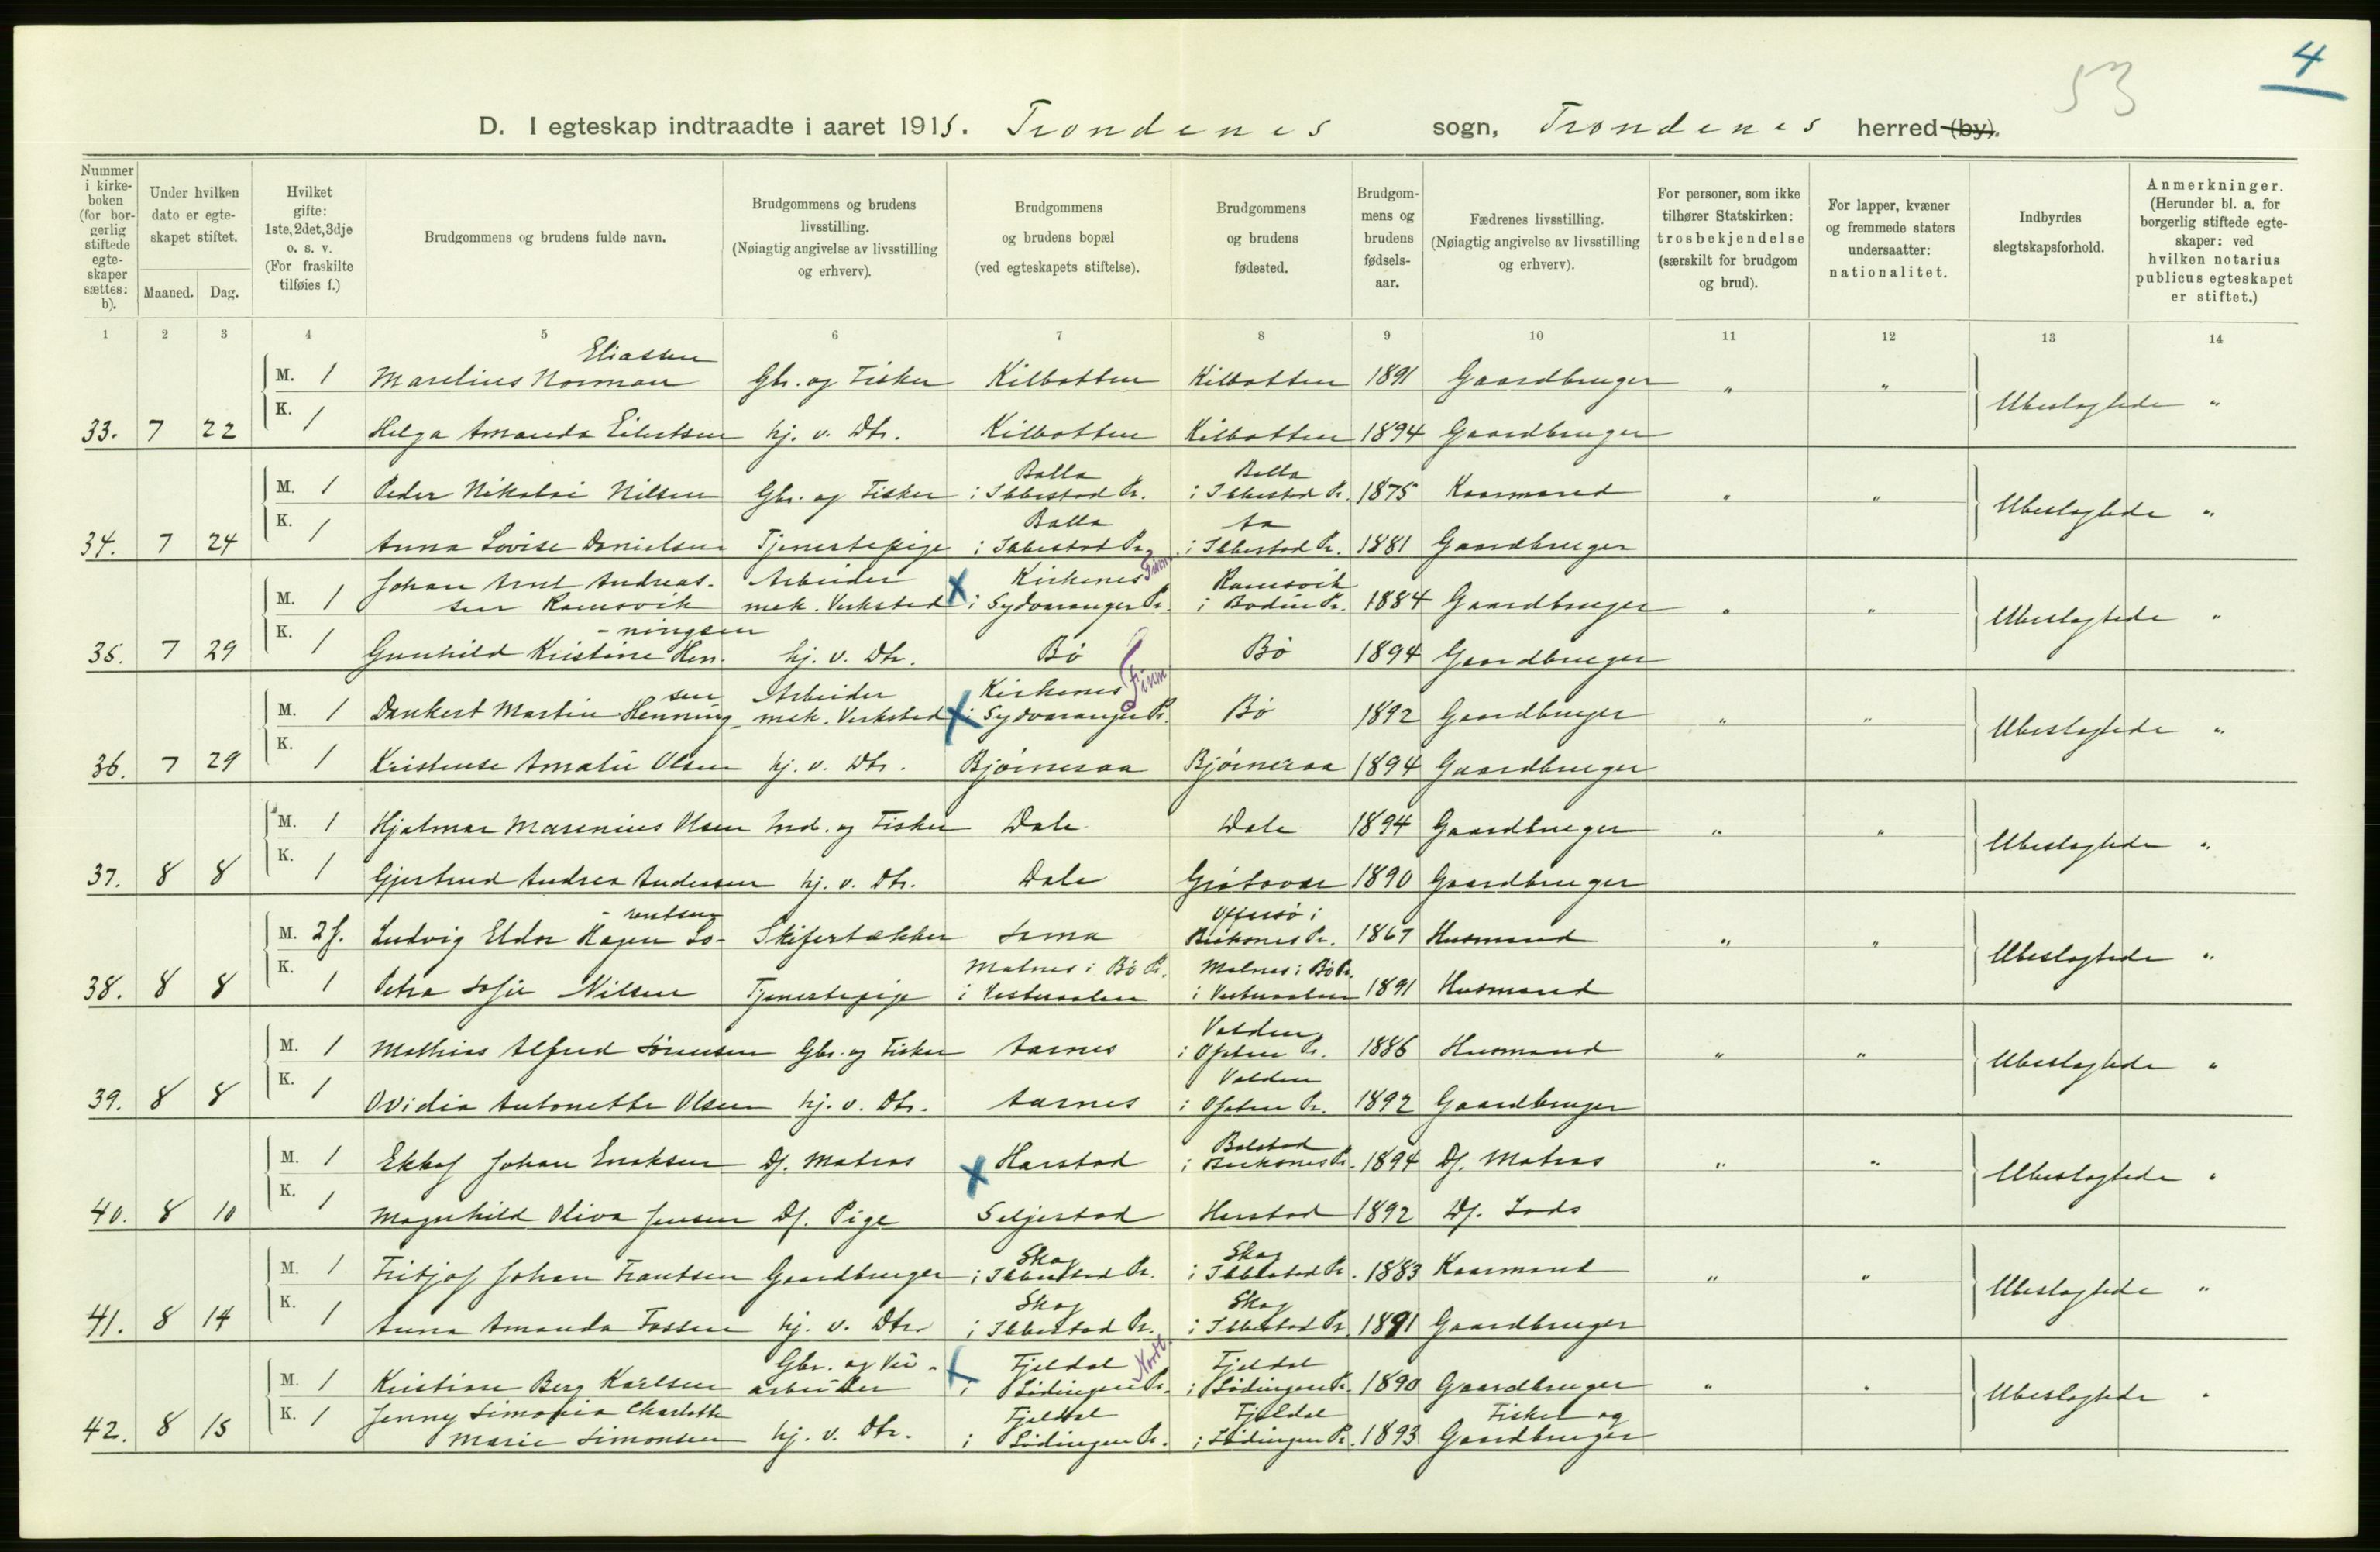 4
53
D. I egteskap indtraadte i aaret 1915. Trondenes sogn, Trondenes herred (by).
Nummer i kirke-boken (for bor-gerlig stiftede egte-skaper sættes: b).
Under hvilken dato er egte-skapet stiftet.
Maaned. Dag.
Hvilket gifte: 1ste, 2det, 3dje o. s. v. (For fraskilte tilføies f.)
Brudgommens og brudens fulde navn.
Brudgommens og brudens livsstilling. (Nøiagtig angivelse av livsstilling og erhverv).
Brudgommens og brudens bopæl (ved egteskapets stiftelse).
Brudgommens og brudens fødested.
Brudgom-mens og brudens fødsels-aar.
Fædrenes livsstilling. (Nøiagtig angivelse av livsstilling og erhverv).
For personer, som ikke tilhører Statskirken: trosbekjendelse (særskilt for brudgom og brud).
For lapper, kvæner og fremmede staters undersaatter: nationalitet.
Indbyrdes slegtskapsforhold.
Anmerkninger. (Herunder bl. a. for borgerlig stiftede egte-skaper: ved hvilken notarius publicus egteskapet er stiftet.)
1 2 3 4 5 6 7 8 9 10 11 12 13 14
Eliassen
M. 1 Marelius Norman Gbr. og Fisker Kilbotten Kilbotten 1891 Gaardbruger " "
33. 7 22 K. 1 Helga Amanda Eilertsen hj. v. Dtr. Kilbotten Kilbotten 1894 Gaardbruger Ubeslegtede "
Balla Balla
M. 1 Peder Nikolai Nilsen Gbr. og Fisker i Ibbestad Pr. i Ibbestad Pr. 1875 Kaarmand " "
Balla Aa
34. 7 24 K. 1 Anna Lovise Danielsen Tjenestepige i Ibbestad Pr. i Ibbestad Pr. 1881 Gaardbruger Ubeslegtede "
Johan Arnt Andreas- Arbeider Kirkenes Ramsvik
M. 1 sen Ramsvik mek. Verksted X i Sydvaranger Pr. i Bodin Pr. 1884 Gaardbruger " "
- ningsen
35. 7 29 K. 1 Gunhild Kristine Hen- hj. v. Dtr. Bø Bø 1894 Gaardbruger Ubeslegtede "
sen Arbeider Kirkenes Finm
M. 1 Dankert Martin Henning- mek. Verksted X i Sydvaranger Pr. Bø 1892 Gaardbruger " "
36. 7 29 K. 1 Kristense Amalie Olsen hj. v. Dtr. Bjørneraa Bjørneraa 1894 Gaardbruger Ubeslegtede "
M. 1 Hjalmar Marenius Olsen Ind. og Fisker Dale Dale 1894 Gaardbruger " "
37. 8 8 K. 1 Gjertrud Andrea Andersen hj. v. Dtr. Dale Grøtavær 1890 Gaardbruger Ubeslegtede "
- rentsen Offersø i
M. 2 f. Ludvig Eldor Hagen Lo- Skifertækker Sama Buksnes Pr. 1867 Husmand " "
Malnes i Bø Pr. Malnes i Bø Pr.
38. 8 8 K. 1 Petra Sofie Nilsen Tjenestepige i Vesteraalen i Vesteraalen 1891 Husmand Ubeslegtede "
Valden
M. 1 Mathias Alfred Sørensen Gbr. og Fisker Aarnes i Ofoten Pr. 1886 Husmand " "
Valden
39. 8 8 K. 1 Ovidia Antonette Olsen hj. v. Dtr. Aarnes i Ofoten Pr. 1892 Gaardbruger Ubeslegtede "
Balstad
M. 1 Ekhof Johan Enoksen Df. Matros X Harstad i Buksnes Pr. 1894 Df. Matros " "
40. 8 10 K. 1 Magnhild Oliva Jensen Df. Pige Seljestad Harstad 1892 Df. Lods Ubeslegtede "
Skog Skog
M. 1 Fritjof Johan Frantsen Gaardbruger i Ibbestad Pr. i Ibbestad Pr. 1883 Kaarmand " "
Skog Skog
41. 8 14 K. 1 Anna Amanda Fossen hj. v. Dtr. i Ibbestad Pr. i Ibbestad Pr. 1891 Gaardbruger Ubeslegtede "
Gbr. og Vei- Fjeldal Nordl. Fjeldal
M. 1 Kristian Berg Karlsen arbeider i Lødingen Pr. i Lødingen Pr. 1890 Gaardbruger " "
Jenny Simonia Charlotte Fjeldal Fjeldal Fisker og
42. 8 15 K. 1 Marie Simonsen hj. v. Dtr. i Lødingen Pr. i Lødingen Pr. 1893 Gaardbruger Ubeslegtede "